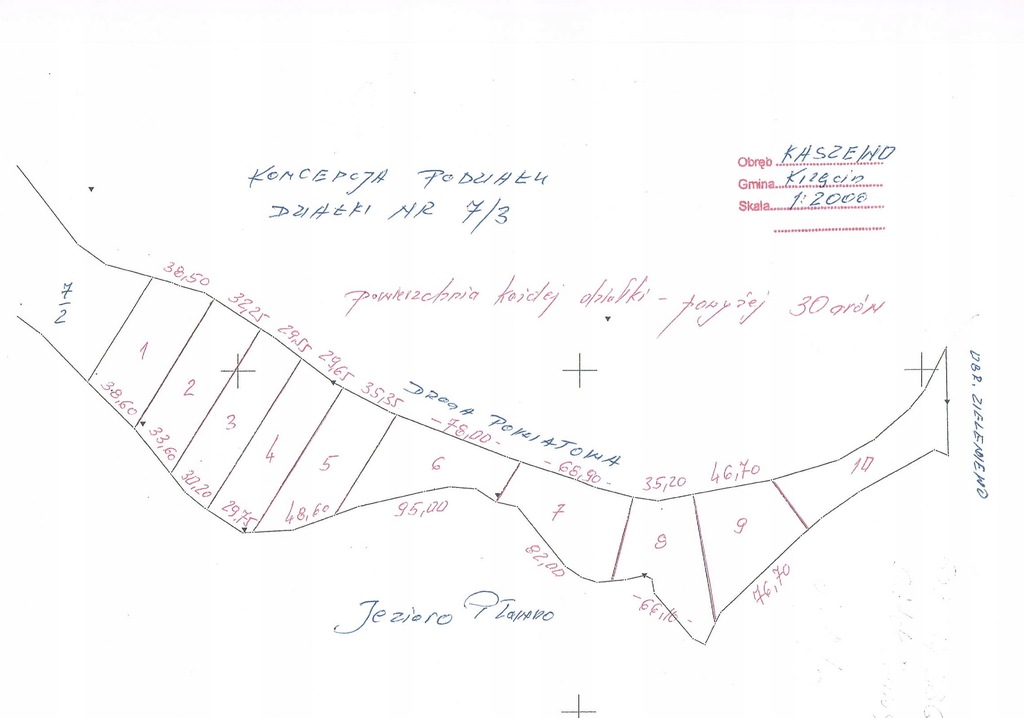 Obręb KASZEWO
Gmina Krzęcin
Skala 1:2000
KONCEPCJA PODZIAŁU
DZIAŁKI NR 7/3
powierzchnia każdej działki - powyżej 30 arów
7
2
38,50
32,25
29,55
29,65
35,35
DROGA POWIATOWA
-78,00-
-66,90-
35,20
46,70
1
2
3
4
5
6
7
8
9
10
38,60
33,60
30,20
29,75
48,60
95,00
82,00
-66,10-
76,70
OBR. ZIELENIEWO
Jezioro